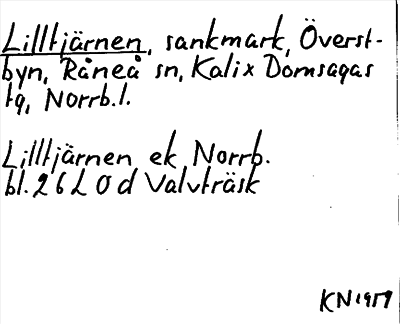 Lilltjärnen, sankmark, Överst-
byn, Råneå sn, Kalix Domsagas
tg, Norrb.l.
Lilltjärnen ek Norrb.
bl. 26 L 0 d Valvträsk
KN 1959